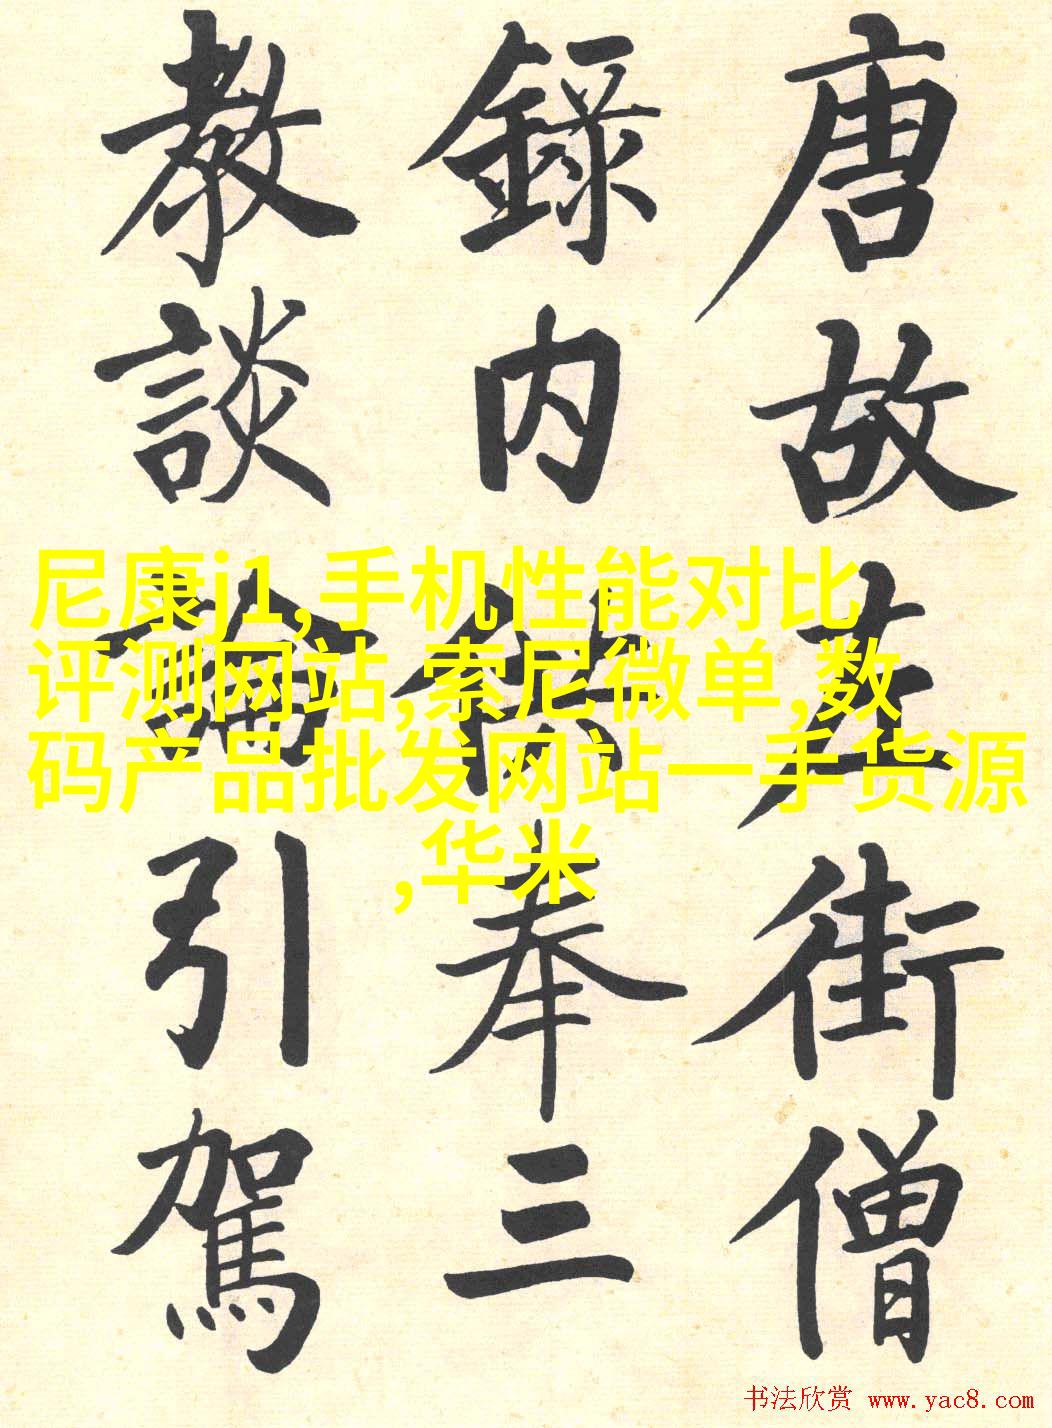 唐故左街僧
錄内供奉三
教談論引駕
尼康j1,手机性能对比
评测网站,索尼微单,数
码产品批发网站一手货源
,华米
书法欣赏 www.yac8.com